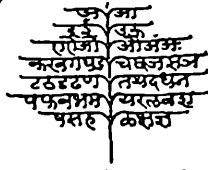 अ आ
इई उऊ
एऐओ औअंअः
कखगघङ चछजझञ
टठडढण तथदधन
पफबभम यरलवश
षसह ळक्षज्ञ